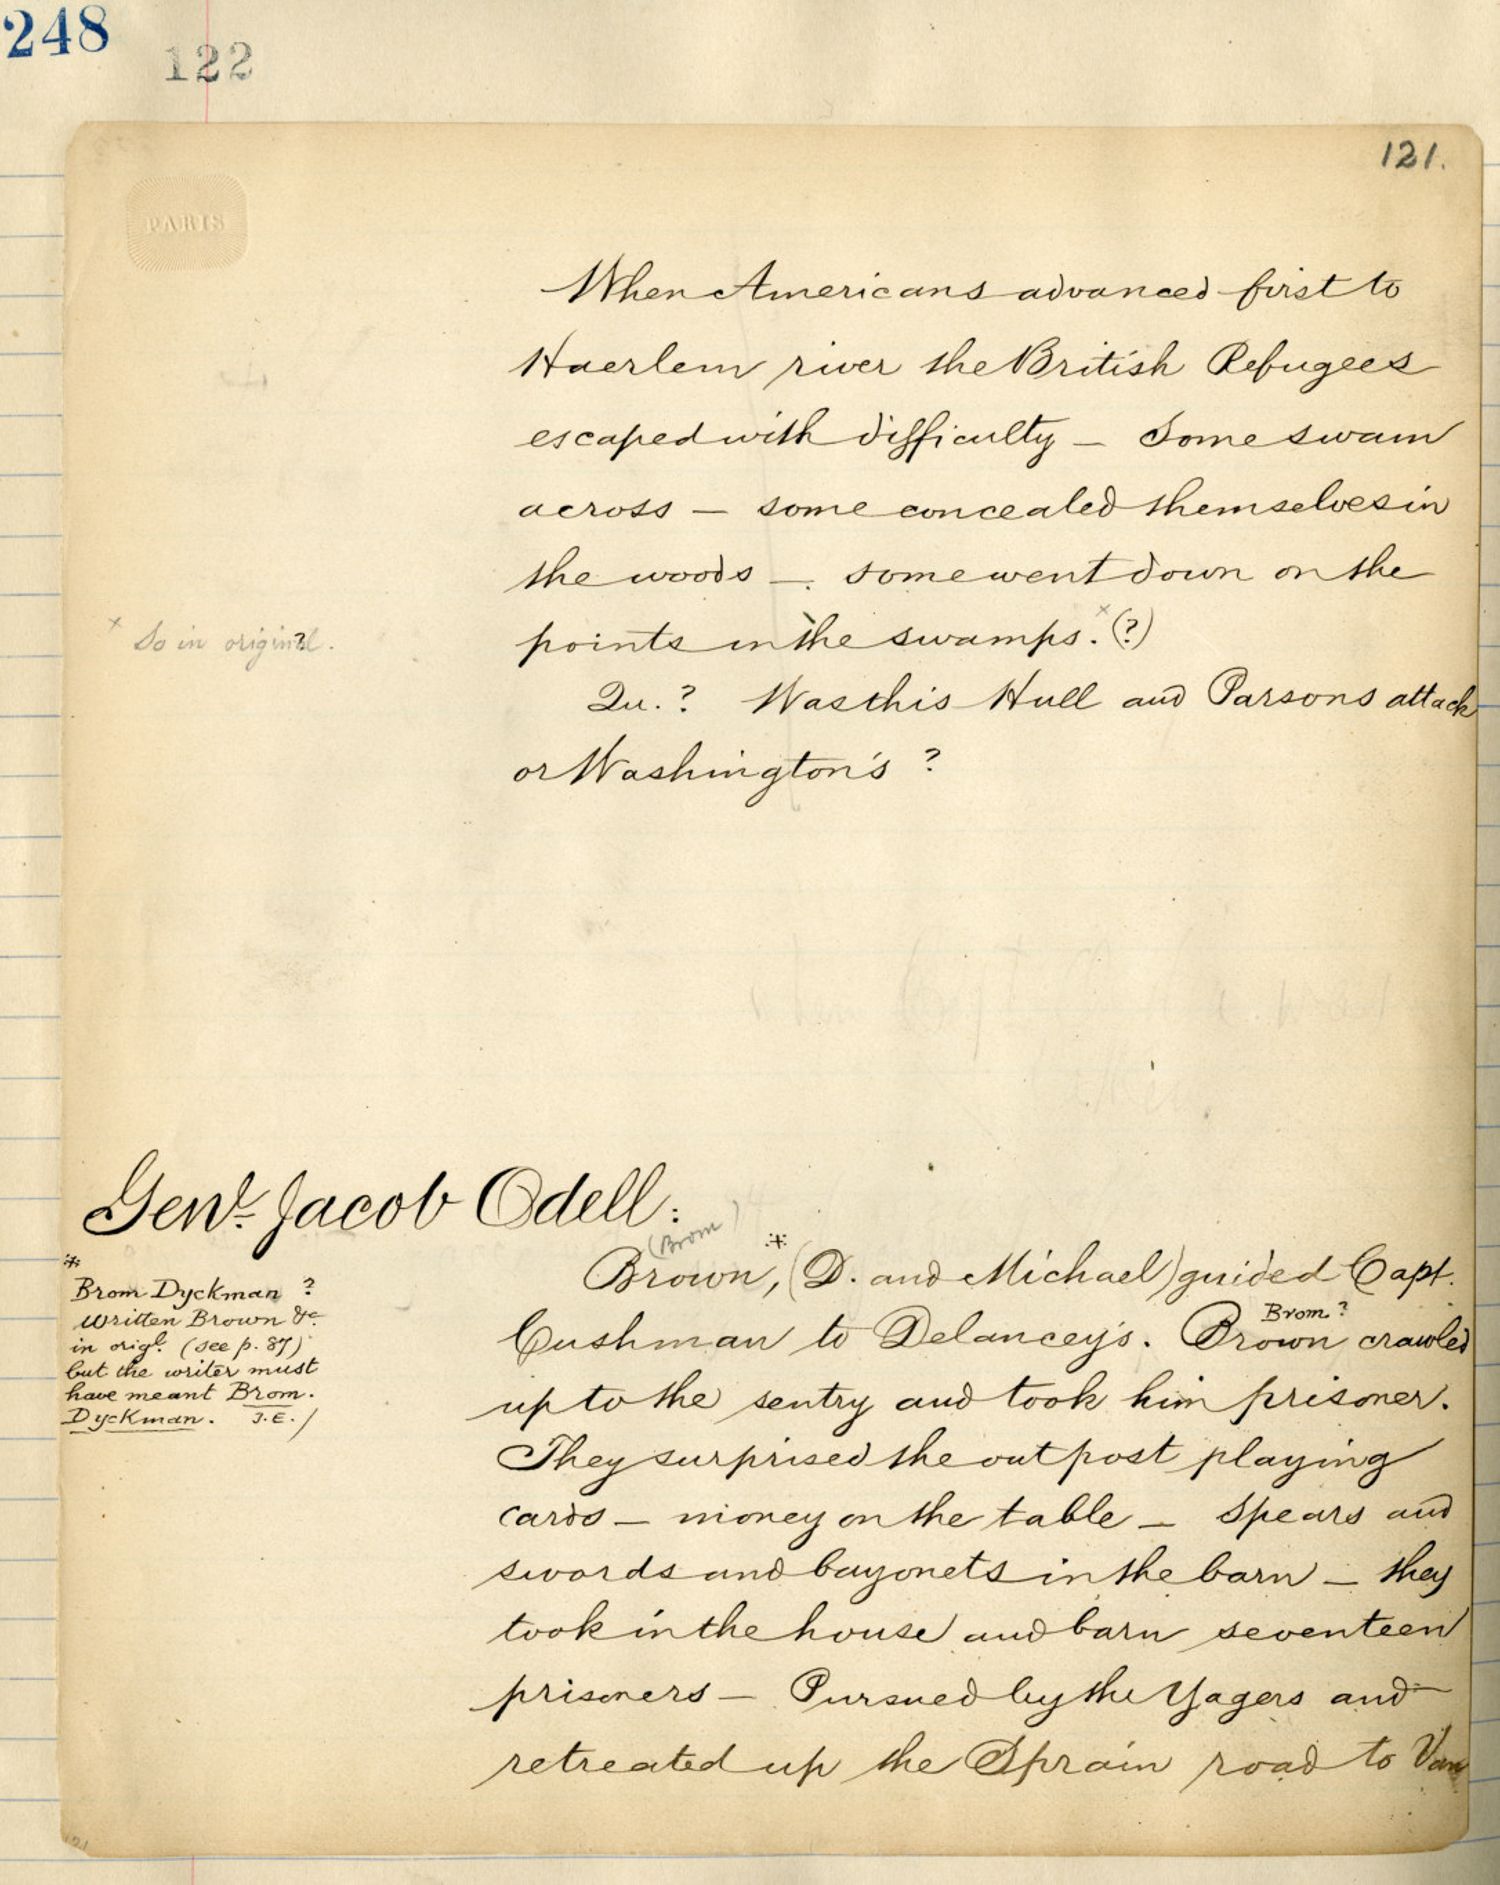 248
122
121.
PARIS
When Americans advanced first to
Haerlem river the British Refugees
escaped with difficulty — Some swam
across — some concealed themselves in
the woods — some went down on the
points in the swamps. x (?)
x So in original. ?
Qu. ? Was this Hull and Parsons attack
or Washington's ?
Genl. Jacob Odell:
(Brom)
Brown, * (D. and Michael) guided Capt.
Brom?
Cushman to Delancey's. Brown crawled
up to the sentry and took him prisoner.
They surprised the outpost playing
cards — money on the table — Spears and
swords and bayonets in the barn — they
took in the house and barn seventeen
prisoners — Pursued by the Yagers and
retreated up the Sprain road to Van
*
Brom Dyckman ?
written Brown &c
in origl. (see p. 87)
but the writer must
have meant Brom.
Dyckman. J.E./